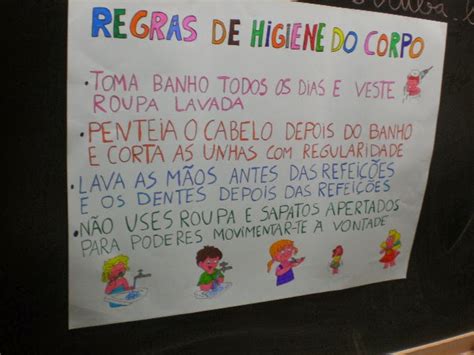 REGRAS DE HIGIENE DO CORPO
• TOMA BANHO TODOS OS DIAS E VESTE
ROUPA LAVADA
• PENTEIA O CABELO DEPOIS DO BANHO
E CORTA AS UNHAS COM REGULARIDADE
• LAVA AS MÃOS ANTES DAS REFEIÇÕES
E OS DENTES DEPOIS DAS REFEIÇÕES
• NÃO USES ROUPA E SAPATOS APERTADOS
PARA PODERES MOVIMENTAR-TE À VONTADE